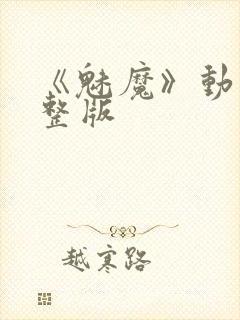 《魅魔》動
整版
越寒路